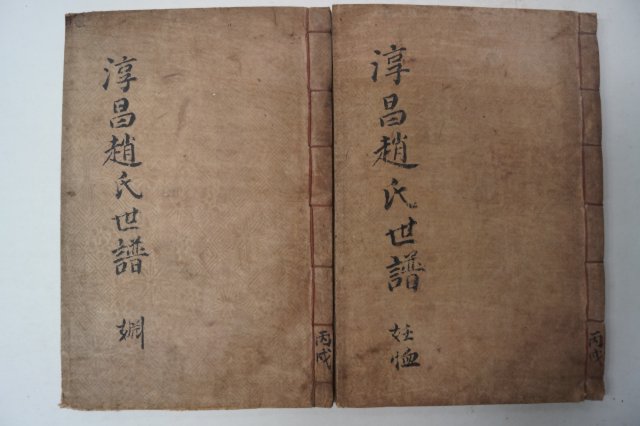 丙戌
淳昌趙氏世譜
妊恤
丙戌
淳昌趙氏世譜
婣